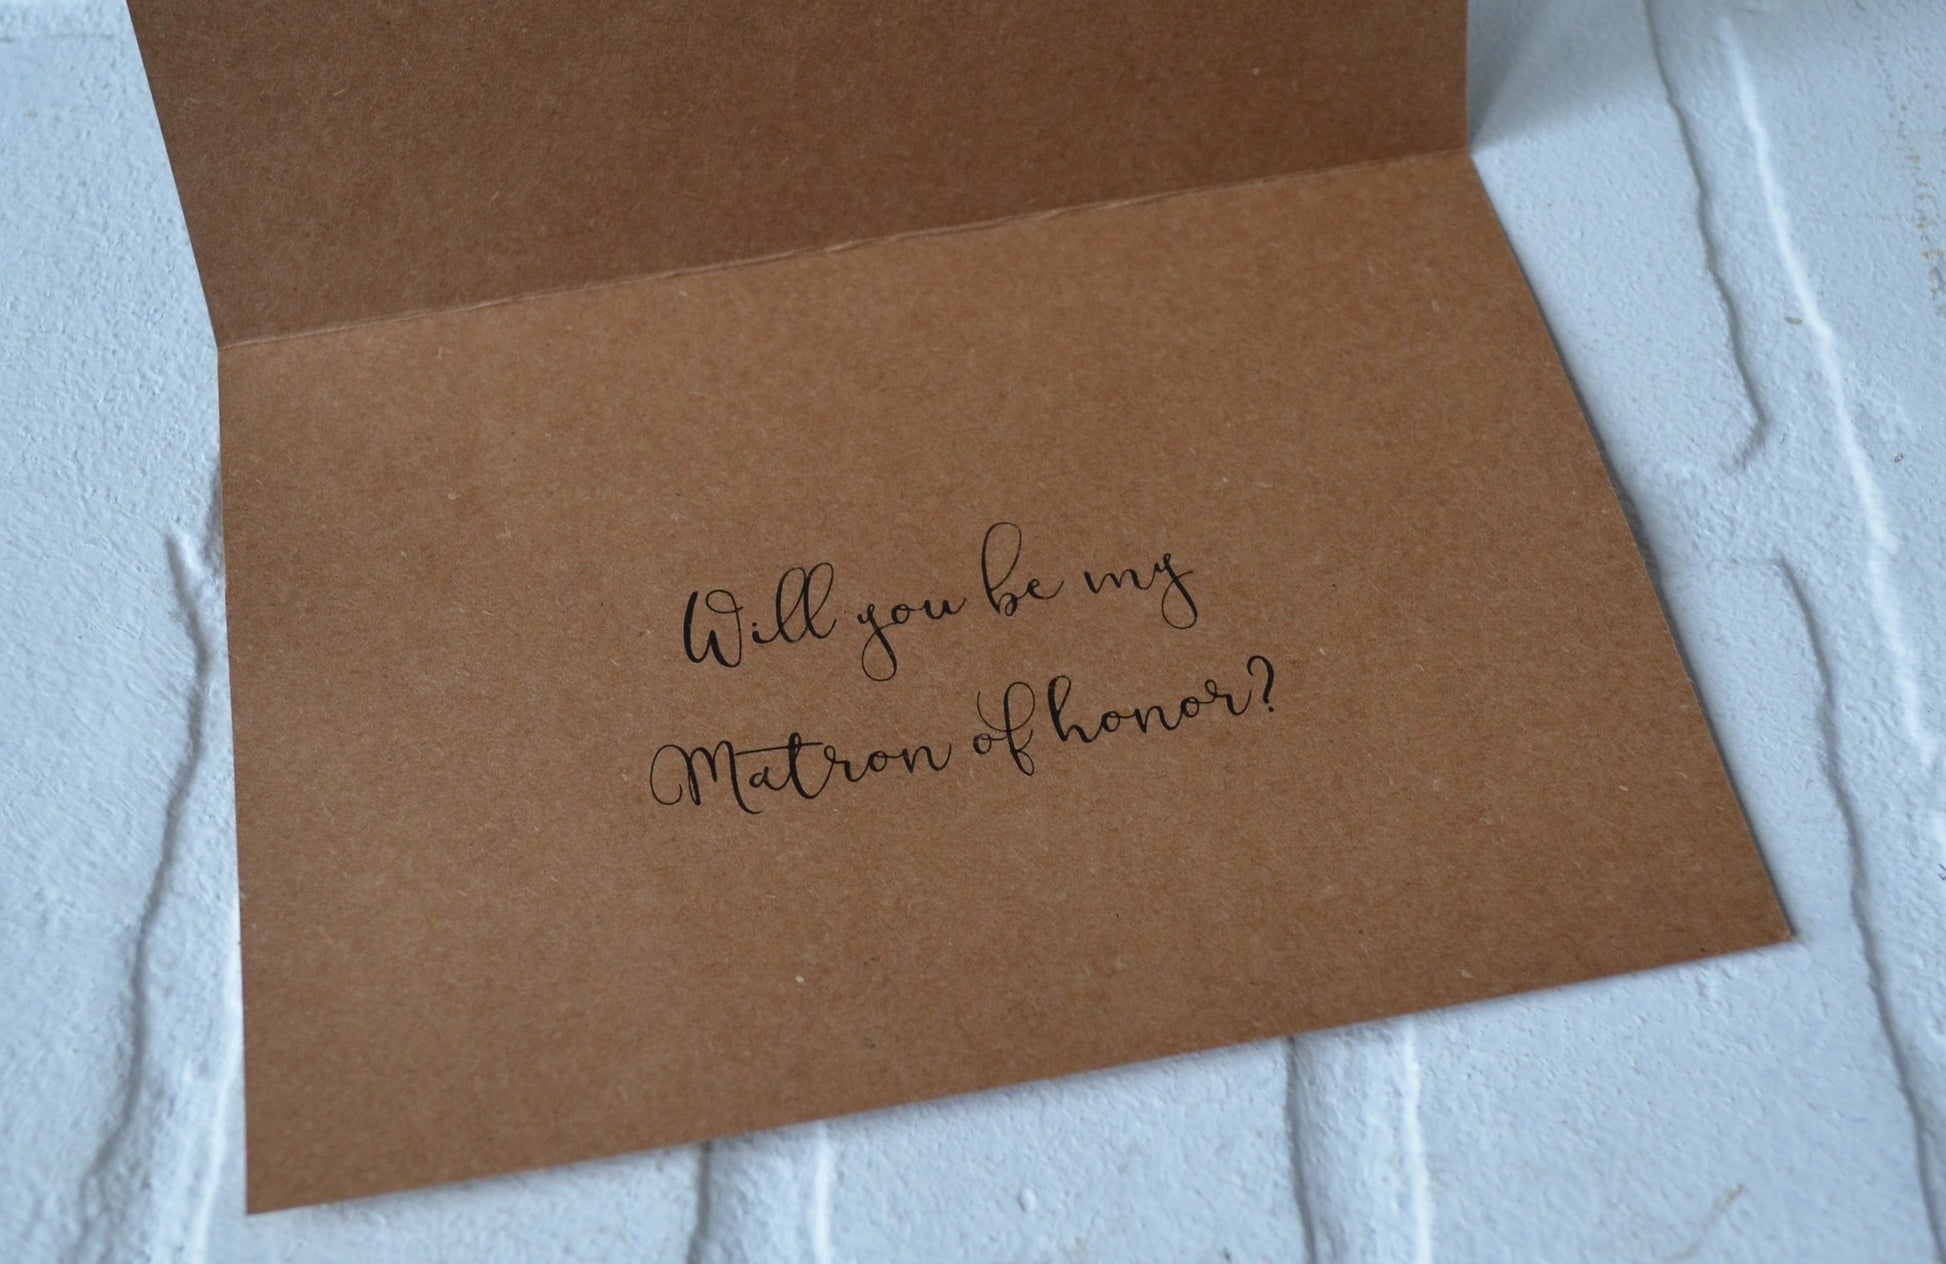 Will you be my
Matron of honor?